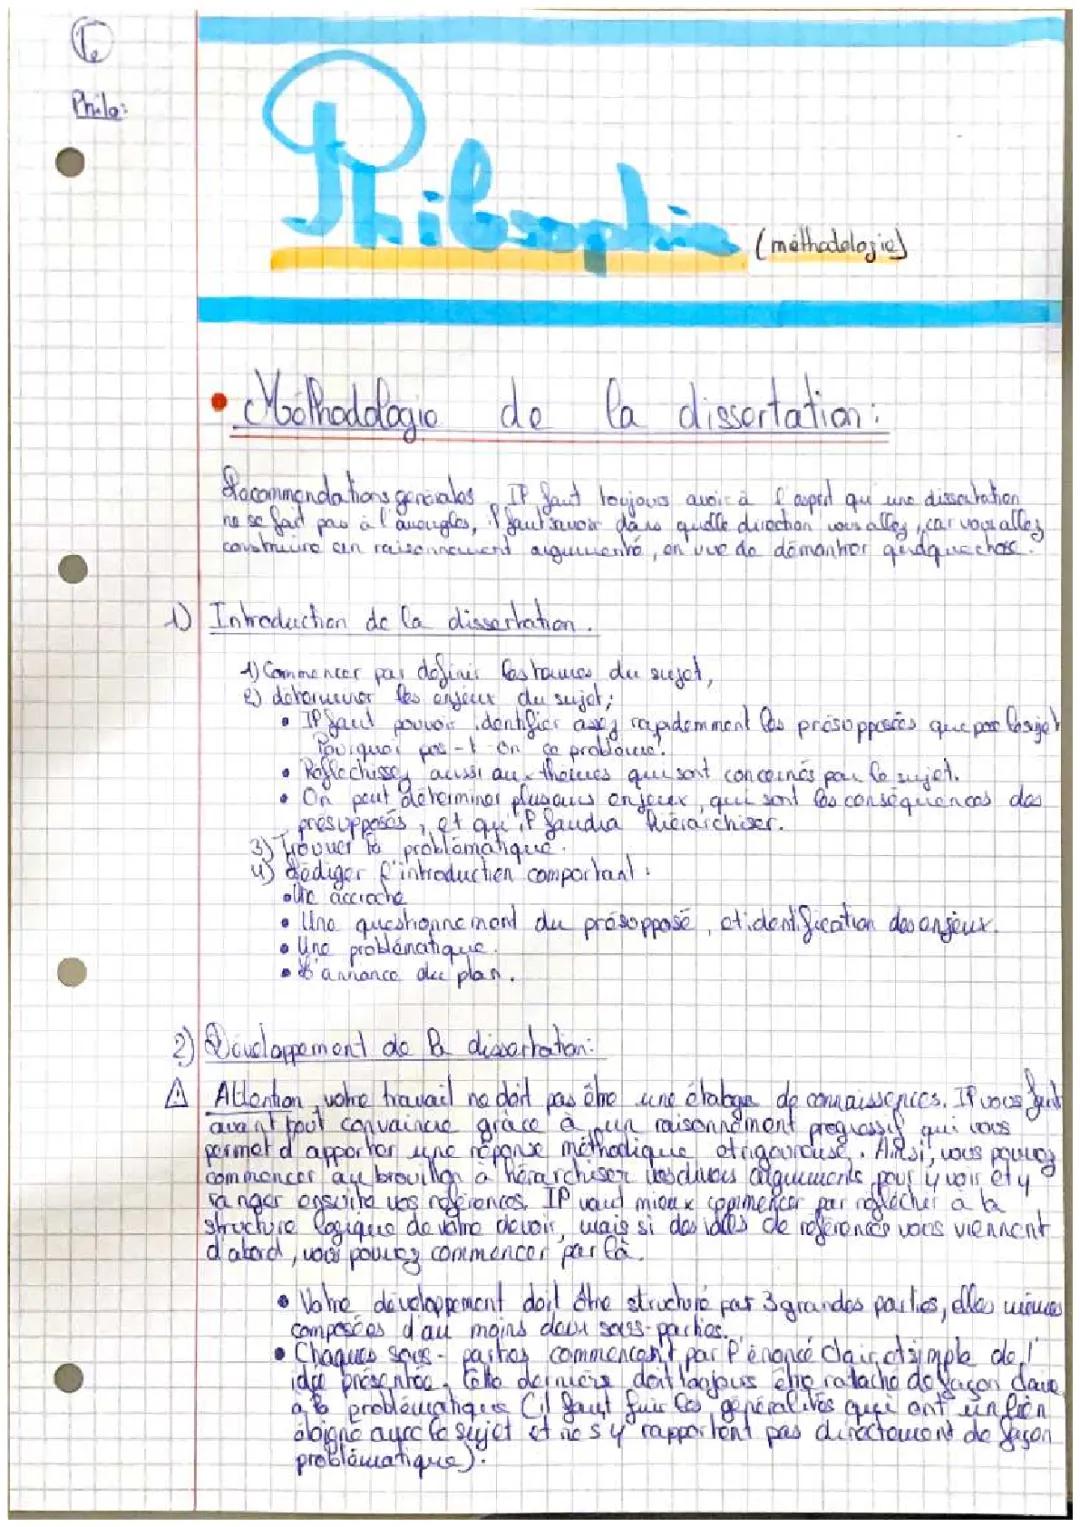 Te
Philo:
Philosophie (méthodologie)
• Méthodologie de la dissertation:
Recommendations générales. Il faut toujours avoir à l'esprit qu'une dissertation
ne se fait pas à l'aveugles, il faut savoir dans quelle direction vous allez, car vous allez
construire un raisonnement argumenté, en vue de démontrer quelque chose.
1) Introduction de la dissertation.
1) Commencer par définir les termes du sujet,
2) déterminer les enjeux du sujet;
• Il faut pouvoir identifier assez rapidemment les présupposées que pose le sujet
Pourquoi pos-t-on ce problème?
• Réflechissez aussi aux thèmes qui sont concernés par le sujet.
• On peut déterminer plusieurs enjeux, qui sont les conséquences des
présupposés, et qu'il faudra hiérarchiser.
3) Trouver la problématique.
4) Rédiger l'introduction comportant:
• Une accroche
• Une questionnement du présopposé, et identification des enjeux.
• Une problématique.
• L'annonce du plan.
2) Développement de la dissertation:
⚠ Attention, votre travail ne doit pas être une étalage de connaissences. Il vous faut
avant tout convaincre grâce à un raisonnement progressif qui vous
permet d'apporter une réponse méthodique et rigoureuse. Ainsi, vous pouvez
commencer au brouillon à hérarchiser vos divers arguments pour y voir et y
ranger ensuite vos références. Il vaud mieux commencer par réflechir à la
structure logique de votre devoir, mais si des idées de références vous viennent
d'abord, vous pouvez commencer par là.
• Votre développement doit être structuré par 3 grandes parties, elles mêmes
composées d'au moins deux sous-parties.
• Chaques sous-parties commencent par l'énoncé clair et simple de l'
idée présentée. Cette dernière doit toujours être rataché de façon claire
à la problématique (il faut fuir les généralités qui ont un lien
éloigné avec le sujet et ne s'y rapportent pas directement de façon
problématique).